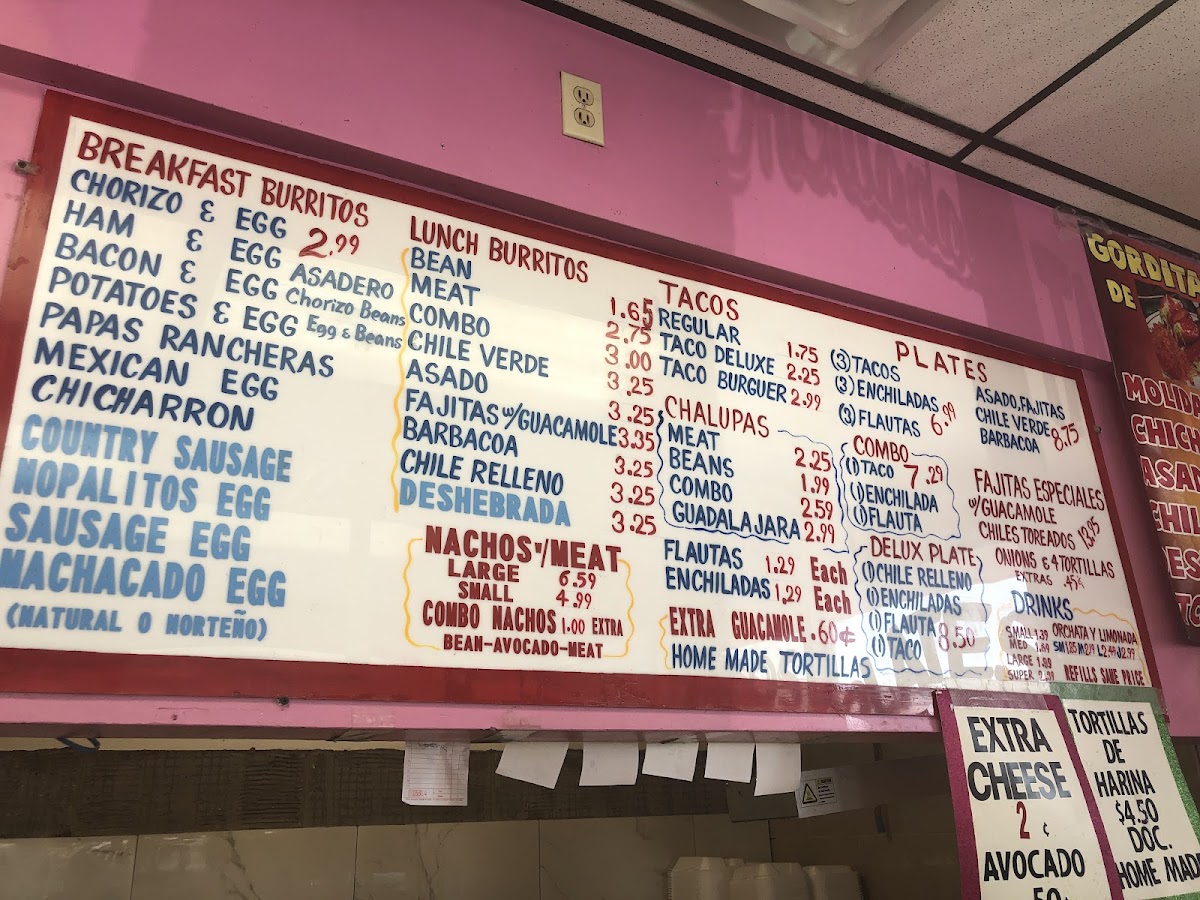 BREAKFAST BURRITOS
CHORIZO & EGG 2.99
HAM & EGG
BACON & EGG
POTATOES & EGG
PAPAS RANCHERAS
MEXICAN EGG
CHICHARRON
ASADERO
Chorizo Beans
Egg & Beans
COUNTRY SAUSAGE
NOPALITOS EGG
SAUSAGE EGG
MACHACADO EGG
(NATURAL O NORTEÑO)
LUNCH BURRITOS
BEAN 1.65
MEAT 2.75
COMBO 3.00
CHILE VERDE 3.25
ASADO 3.25
FAJITAS w/GUACAMOLE 3.35
BARBACOA 3.25
CHILE RELLENO 3.25
DESHEBRADA 3.25
NACHOS W/MEAT
LARGE 6.59
SMALL 4.99
COMBO NACHOS 1.00 EXTRA
BEAN-AVOCADO-MEAT
TACOS
REGULAR 1.75
TACO DELUXE 2.25
TACO BURGUER 2.99
CHALUPAS
MEAT 2.25
BEANS 1.99
COMBO 2.59
GUADALAJARA 2.99
FLAUTAS 1.29 Each
ENCHILADAS 1.29 Each
EXTRA GUACAMOLE .60¢
HOME MADE TORTILLAS
PLATES
(3) TACOS
(3) ENCHILADAS
(3) FLAUTAS 6.99
COMBO
(1) TACO 7.29
(1) ENCHILADA
(1) FLAUTA
DELUX PLATE
(1) CHILE RELLENO
(1) ENCHILADAS
(1) FLAUTA 8.50
(1) TACO
ASADO, FAJITAS
CHILE VERDE 8.75
BARBACOA
FAJITAS ESPECIALES
w/GUACAMOLE
CHILES TOREADOS 13.95
ONIONS & 4 TORTILLAS
EXTRAS .45¢
DRINKS
SMALL 1.39
MED
LARGE
SUPER
ORCHATA Y LIMONADA
REFILLS SAME PRICE
GORDITA
DE
EXTRA
CHEESE
2 ¢
AVOCADO
TORTILLAS
DE
HARINA
$4.50
DOC.
HOME MADE